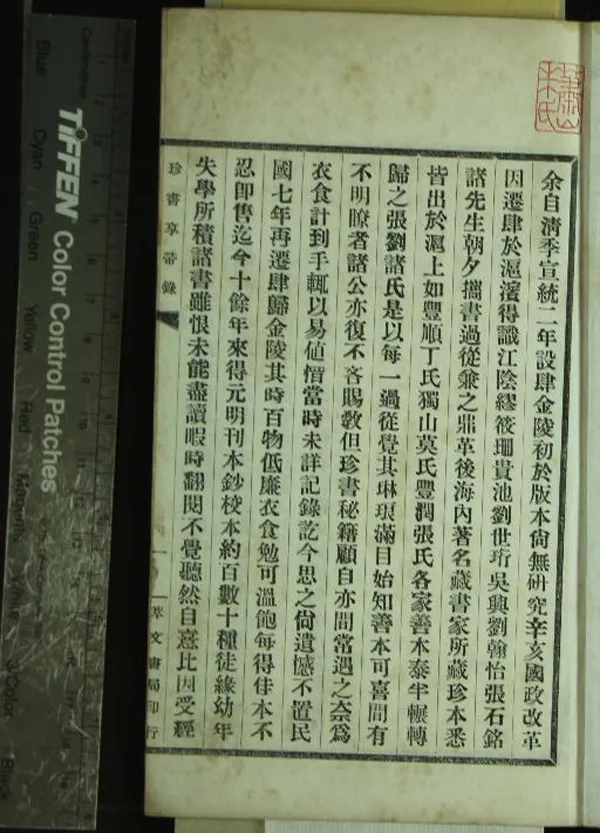 余自淸季宣統二年設肆金陵初於版本尙無硏究辛亥國政改革
因遷肆於滬濱得識江陰繆筱珊貴池劉世珩吳興劉翰怡張石銘
諸先生朝夕攜書過從兼之鼎革後海內著名藏書家所藏珍本悉
皆出於滬上如豐順丁氏獨山莫氏豐潤張氏各家善本泰半輾轉
歸之張劉諸氏是以每一過從覺其琳琅滿目始知善本可喜間有
不明瞭者諸公亦復不吝賜敎但珍書秘籍顧自亦間常遇之奈爲
衣食計到手輒以易値惜當時未詳記錄訖今思之尙遺憾不置民
國七年再遷肆歸金陵其時百物低廉衣食勉可溫飽每得佳本不
忍卽售迄今十餘年來得元明刊本鈔校本約百數十種徒緣幼年
失學所積諸書雖恨未能盡讀暇時翻閱不覺聽然自憙比因受經
珍書享帚錄
一
萃文書局印行
TIFFEN Color Control Patches
Blue
Cyan
Green
Yellow
Red
Magenta
Black
Centimetres